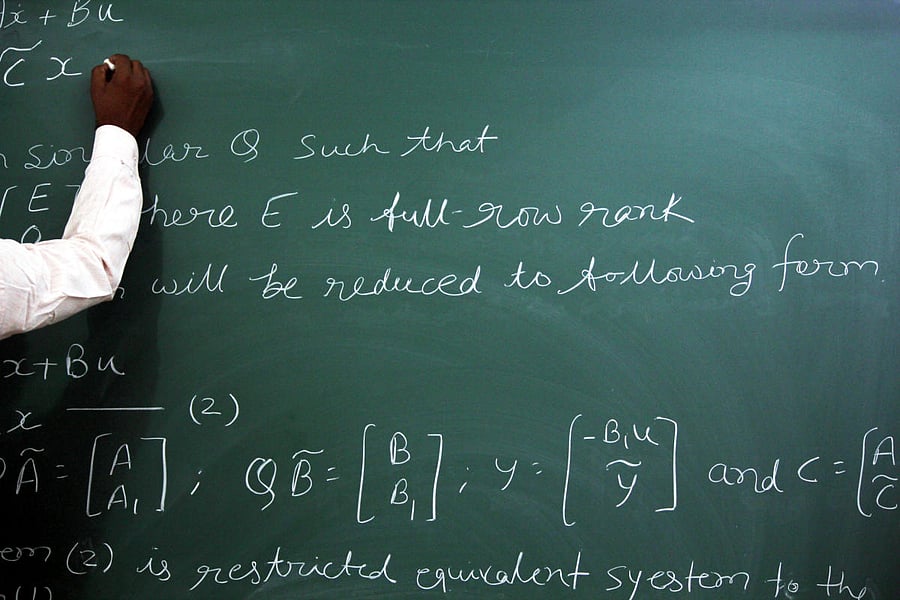 ẋ + Bu
C̃ x
Q such that
[E] here E is full-row rank
will be reduced to following form.
x + Bu
x ——— (2)
Ã = [A A₁] ; Q B̃ = [B B₁] ; y = [-B₁u ỹ] and C = [A C̃
(2) is restricted equivalent syestem to the